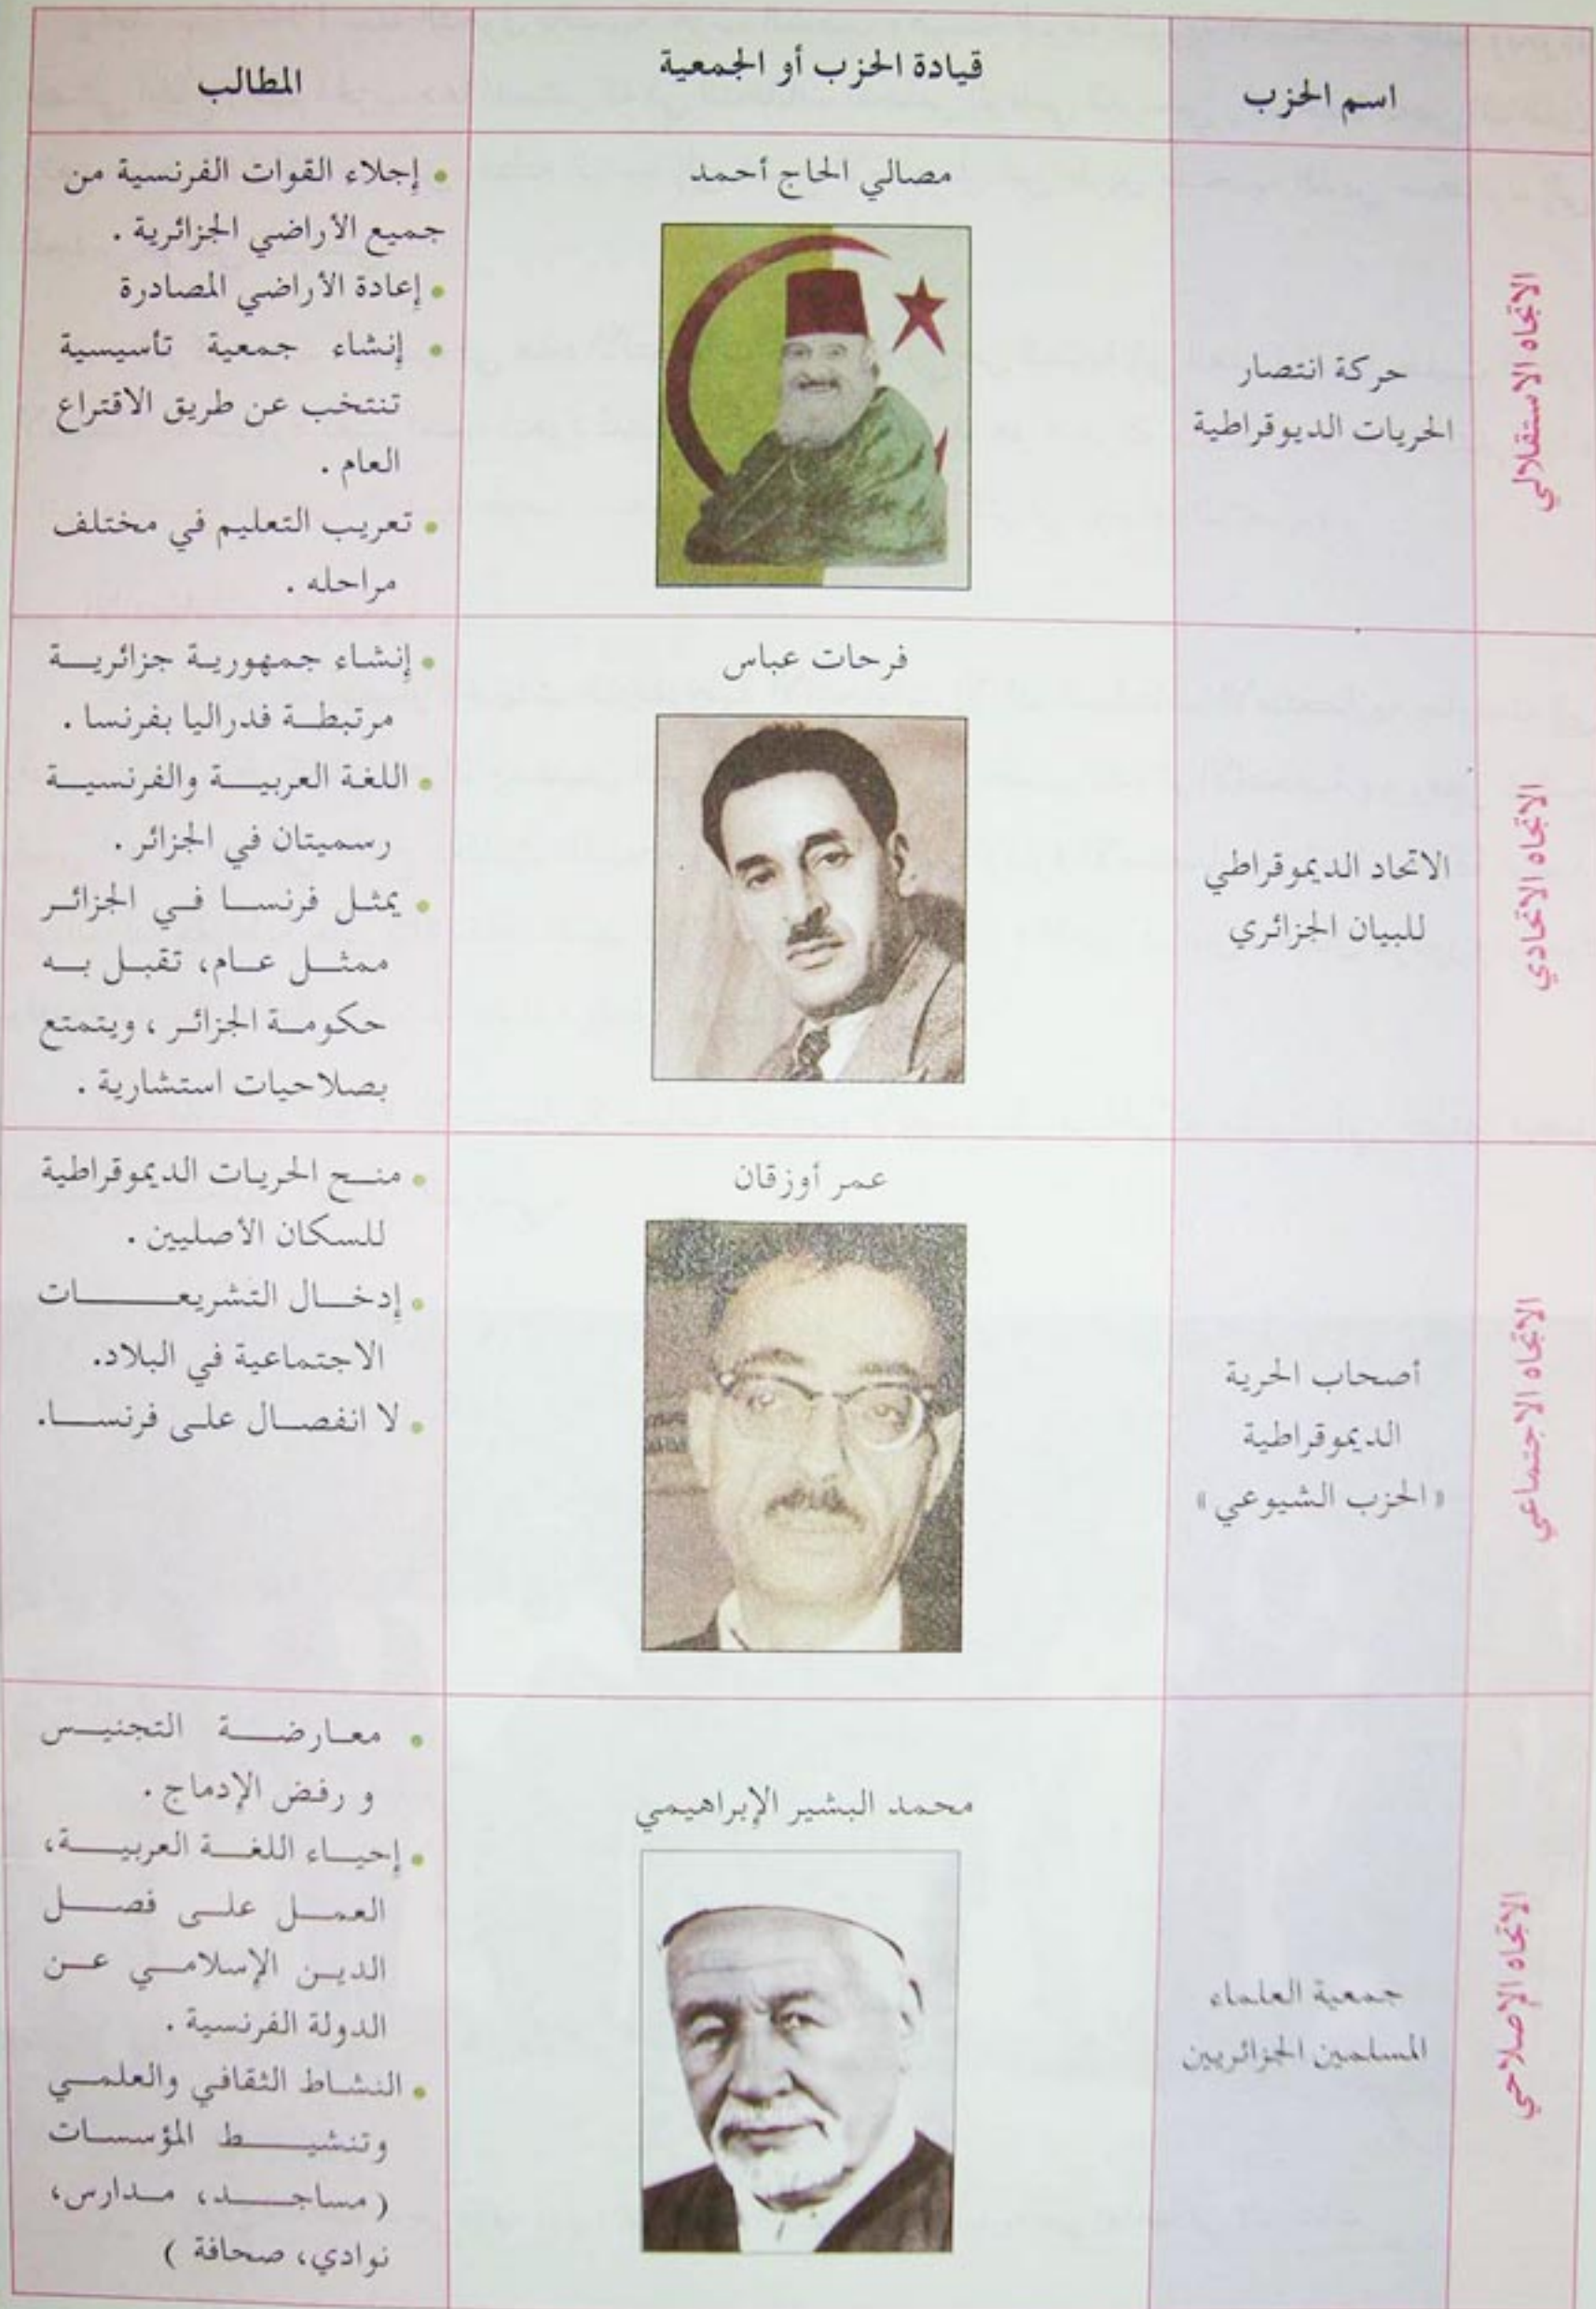 اسم الحزب
قيادة الحزب أو الجمعية
المطالب
الاتجاه الاستقلالي
حركة انتصار
الحريات الديوقراطية
مصالي الحاج أحمد
• إجلاء القوات الفرنسية من
جميع الأراضي الجزائرية .
• إعادة الأراضي المصادرة
• إنشاء جمعية تأسيسية
تنتخب عن طريق الاقتراع
العام .
• تعريب التعليم في مختلف
مراحله .
الاتجاه الاتحادي
الاتحاد الديموقراطي
للبيان الجزائري
فرحات عباس
• إنشاء جمهورية جزائرية
مرتبطة فدراليا بفرنسا .
• اللغة العربية والفرنسية
رسميتان في الجزائر .
• يمثل فرنسا في الجزائر
ممثل عام، تقبل به
حكومة الجزائر ، ويتمتع
بصلاحيات استشارية .
الاتجاه الاجتماعي
أصحاب الحرية
الديموقراطية
« الحزب الشيوعي »
عمر أوزقان
• منح الحريات الديموقراطية
للسكان الأصليين .
• إدخال التشريعات
الاجتماعية في البلاد.
• لا انفصال على فرنسا.
الاتجاه الإصلاحي
جمعية العلماء
المسلمين الجزائريين
محمد البشير الإبراهيمي
• معارضة التجنيس
و رفض الإدماج .
• إحياء اللغة العربية،
العمل على فصل
الدين الإسلامي عن
الدولة الفرنسية .
• النشاط الثقافي والعلمي
وتنشيط المؤسسات
( مساجد، مدارس،
نوادي، صحافة )